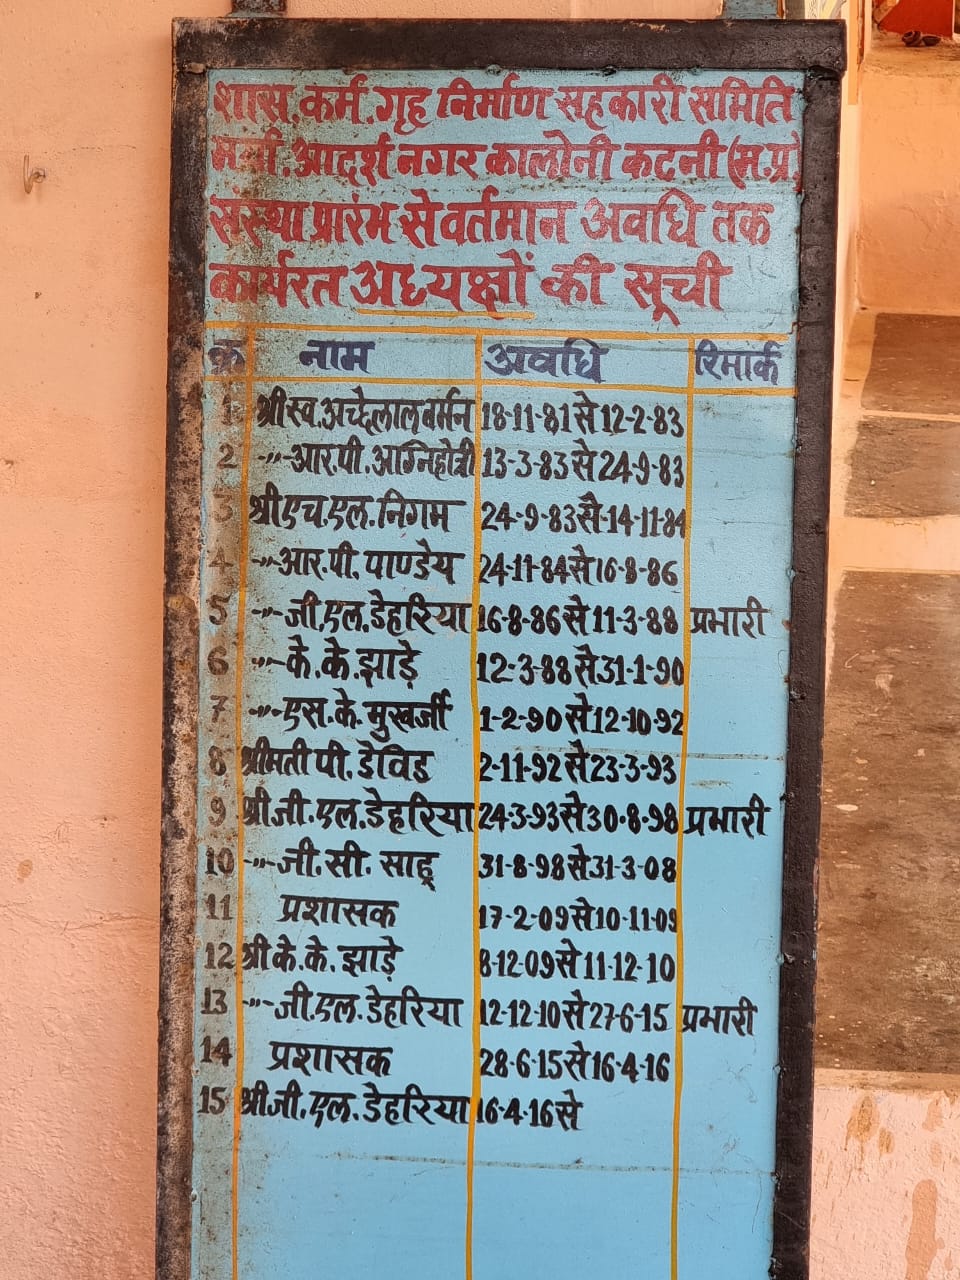 शास. कर्म. गृह निर्माण सहकारी समिति
आदर्श नगर कालोनी कटनी (म.प्र.)
संस्था प्रारंभ से वर्तमान अवधि तक
कार्यरत अध्यक्षों की सूची
क्र नाम अवधि रिमार्क
1 श्री स्व. अच्छेलाल बर्मन 18-11-81 से 12-2-83
2 -"- आर.पी. अग्निहोत्री 13-3-83 से 24-9-83
3 श्री एच.एल. निगम 24-9-83 से 14-11-84
4 -"- आर.पी. पाण्डेय 24-11-84 से 16-8-86
5 -"- जी.एल. डेहरिया 16-8-86 से 11-3-88 प्रभारी
6 -"- के.के. झाड़े 12-3-88 से 31-1-90
7 -"- एस.के. मुखर्जी 1-2-90 से 12-10-92
8 श्रीमती पी. डेविड 2-11-92 से 23-3-93
9 श्री जी.एल. डेहरिया 24-3-93 से 30-8-98 प्रभारी
10 -"- जी.सी. साहू 31-8-98 से 31-3-08
11 प्रशासक 17-2-09 से 10-11-09
12 श्री के.के. झाड़े 8-12-09 से 11-12-10
13 -"- जी.एल. डेहरिया 12-12-10 से 27-6-15 प्रभारी
14 प्रशासक 28-6-15 से 16-4-16
15 श्री जी.एल. डेहरिया 16-4-16 से